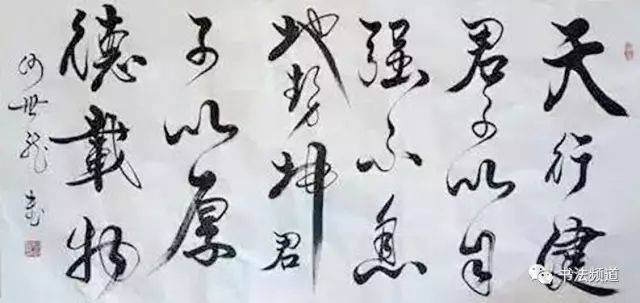 天行健
君子以自
强不息
地勢坤君
子以厚
德載物
世龍書
书法频道